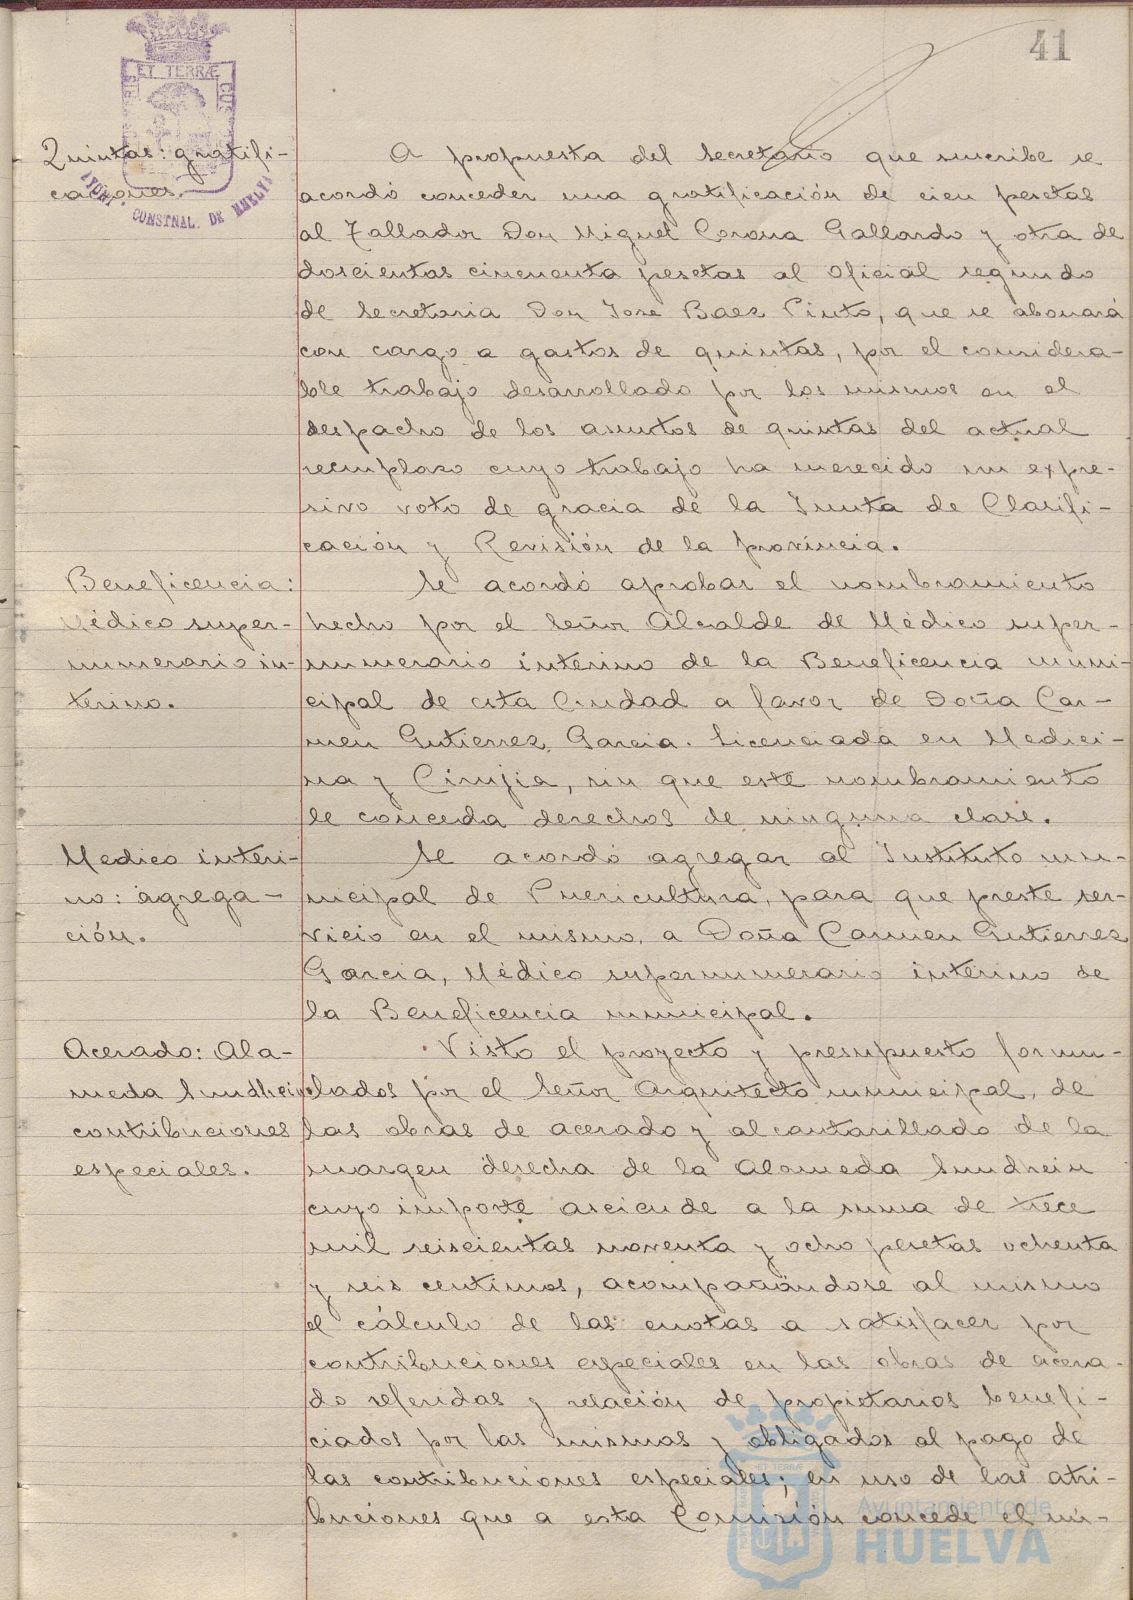 41
ET TERRÆ
AYUNT. CONSTNAL. DE HUELVA
Quintas: gratifi-
caciones.
A propuesta del Secretario que suscribe se
acordó conceder una gratificación de cien pesetas
al Tallador Don Miguel Corona Gallardo y otra de
doscientas cincuenta pesetas al Oficial segundo
de Secretaria Don José Baez Pinto, que se abonará
con cargo a gastos de quintas, por el considera-
ble trabajo desarrollado por los mismos en el
despacho de los asuntos de quintas del actual
reemplazo cuyo trabajo ha merecido un expre-
sivo voto de gracia de la Junta de Clasifi-
cación y Revisión de la provincia.
Beneficencia:
Médico super-
numerario in-
terino.
Se acordó aprobar el nombramiento
hecho por el Señor Alcalde de Médico super-
numerario interino de la Beneficencia muni-
cipal de esta Ciudad a favor de Doña Car-
men Gutierrez Garcia. Licenciada en Medici-
na y Cirujia, sin que este nombramiento
le conceda derechos de ninguna clase.
Medico interi-
no: agrega-
ción.
Se acordó agregar al Instituto mu-
nicipal de Puericultura, para que preste ser-
vicio en el mismo, a Doña Carmen Gutierrez
Garcia, Médico supernumerario interino de
la Beneficencia municipal.
Acerado: Ala-
meda Sundhein
contribuciones
especiales.
Visto el proyecto y presupuesto formu-
lados por el Señor Arquitecto municipal, de
las obras de acerado y alcantarillado de la
margen derecha de la Alameda Sundhein
cuyo importe asciende a la suma de trece
mil seiscientas noventa y ocho pesetas ochenta
y seis centimos, acompañándose al mismo
el cálculo de las cuotas a satisfacer por
contribuciones especiales en las obras de acera-
do referidas y relación de propietarios benefi-
ciados por las mismas y obligados al pago de
las contribuciones especiales; en uso de las atri-
buciones que a esta Comisión concede el nú-
Ayuntamiento de
HUELVA